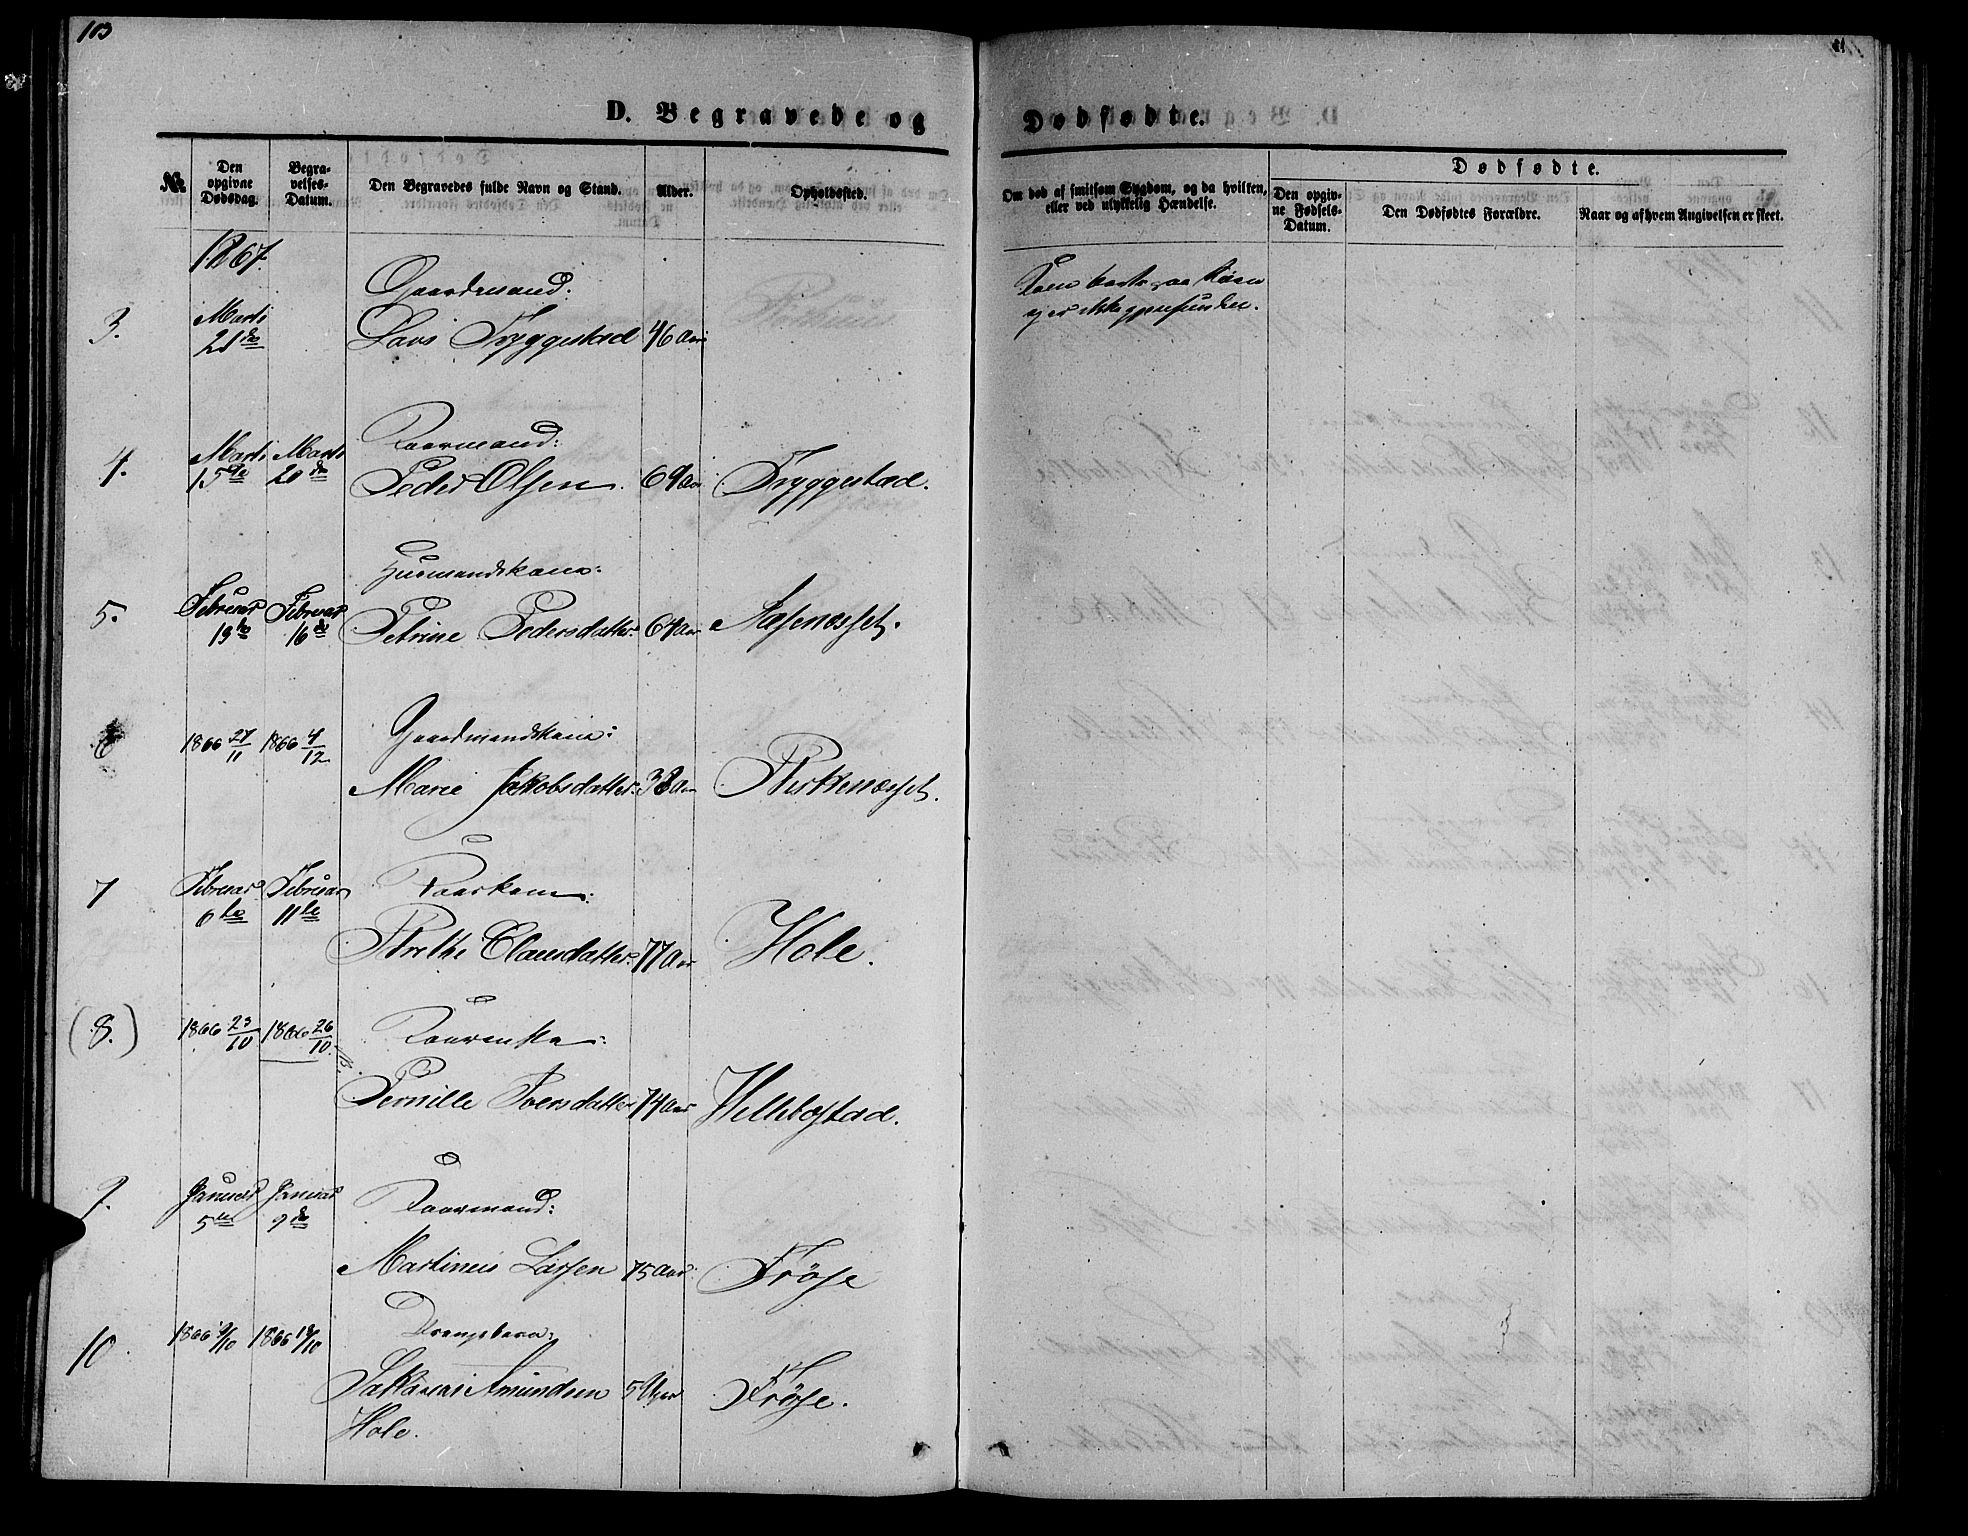 103
D. Begravede og Dødfødte.
№
Den opgivne Dødsdag.
Begravelses-Datum.
Den Begravedes fulde Navn og Stand.
Alder.
Opholdssted.
Om død af smitsom Sygdom, og da hvilken, eller ved ulykkelig Hændelse.
Dødfødte.
Den opgivne Fødsels-Datum.
Den Dødfødtes Forældre.
Naar og af hvem Angivelsen er skeet.
1867.
3. Marts 21de
Gaardmand:
Lars Tryggestad 46 Aar
Kom bort paa Søen
og er ikke gjenfunden.
4. Marts 15de Marts 20de
Kaarmand:
Peder Olsen 69 Aar Tryggestad.
5. Februar 13de Februar 16de
Huusmandskone:
Petrine Pedersdatter 64 Aar Aasenæsset.
6 1866 27/11 1866 4/12
Gaardmandskone:
Marie Jakobsdatter 38 Aar Birkenæsset.
7 Februar 6te Februar 11te
Kaarkone:
Brethe Clausdatter 77 Aar Hole.
(8.) 1866 23/10 1866 26/10
Kaarenke:
Pernille Iversdatter 74 Aar Wellebøstad.
9. Januar 5te Januar 9de
Kaarmand:
Martinus Larsen 75 Aar Frøse
10. 1866 9/10 1866 18/10
Drengebarn:
Sakarias Amundsen 5 Uger Frøse.
Hole.